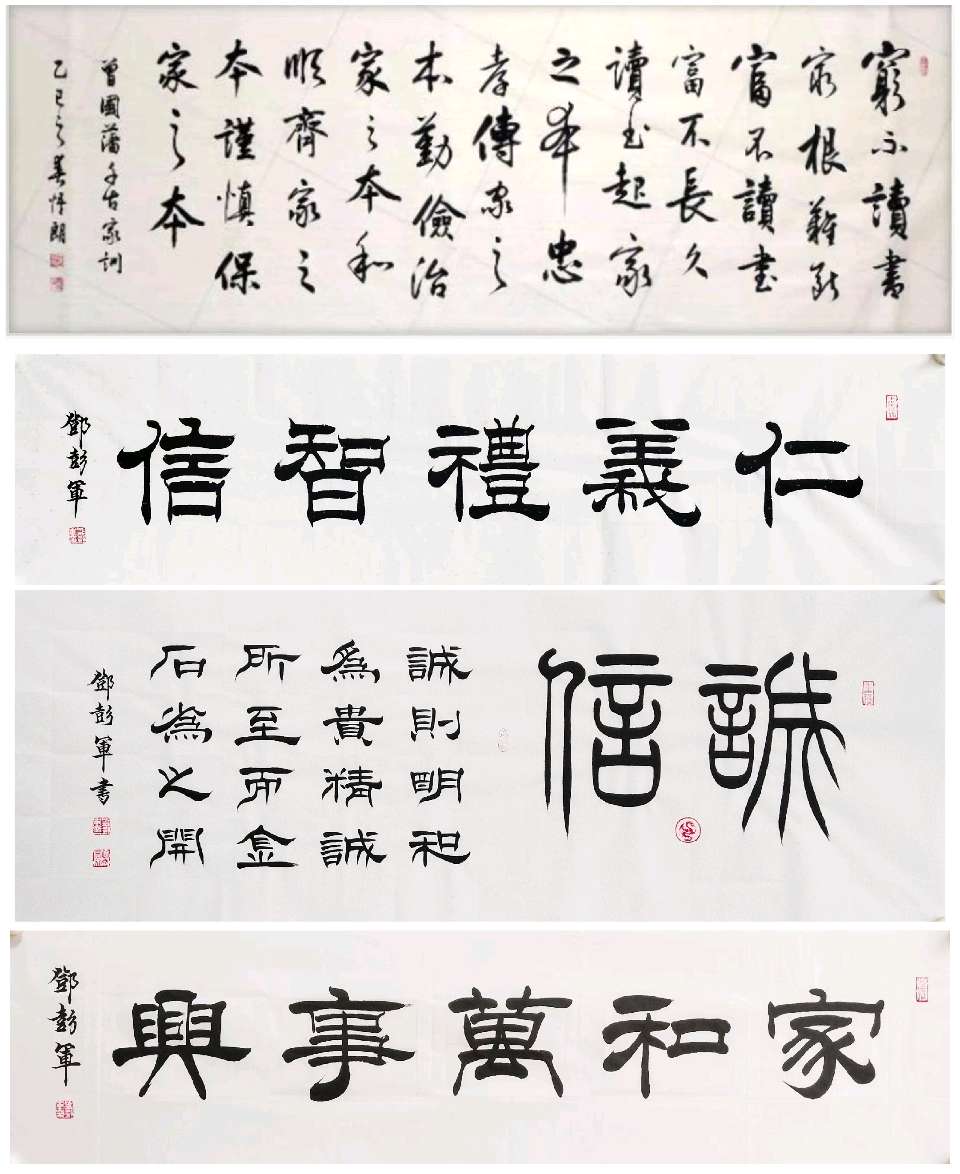 窮不讀書
窮根難斷
富不讀書
富不長久
讀書起家
之本忠
孝傳家之
本勤儉治
家之本和
順齊家之
本謹慎保
家之本
曾國藩千古家訓
乙巳之春
仁義禮智信
鄧彭軍
誠信
誠則明和
為貴精誠
所至而金
石為之開
鄧彭軍書
家和萬事興
鄧彭軍